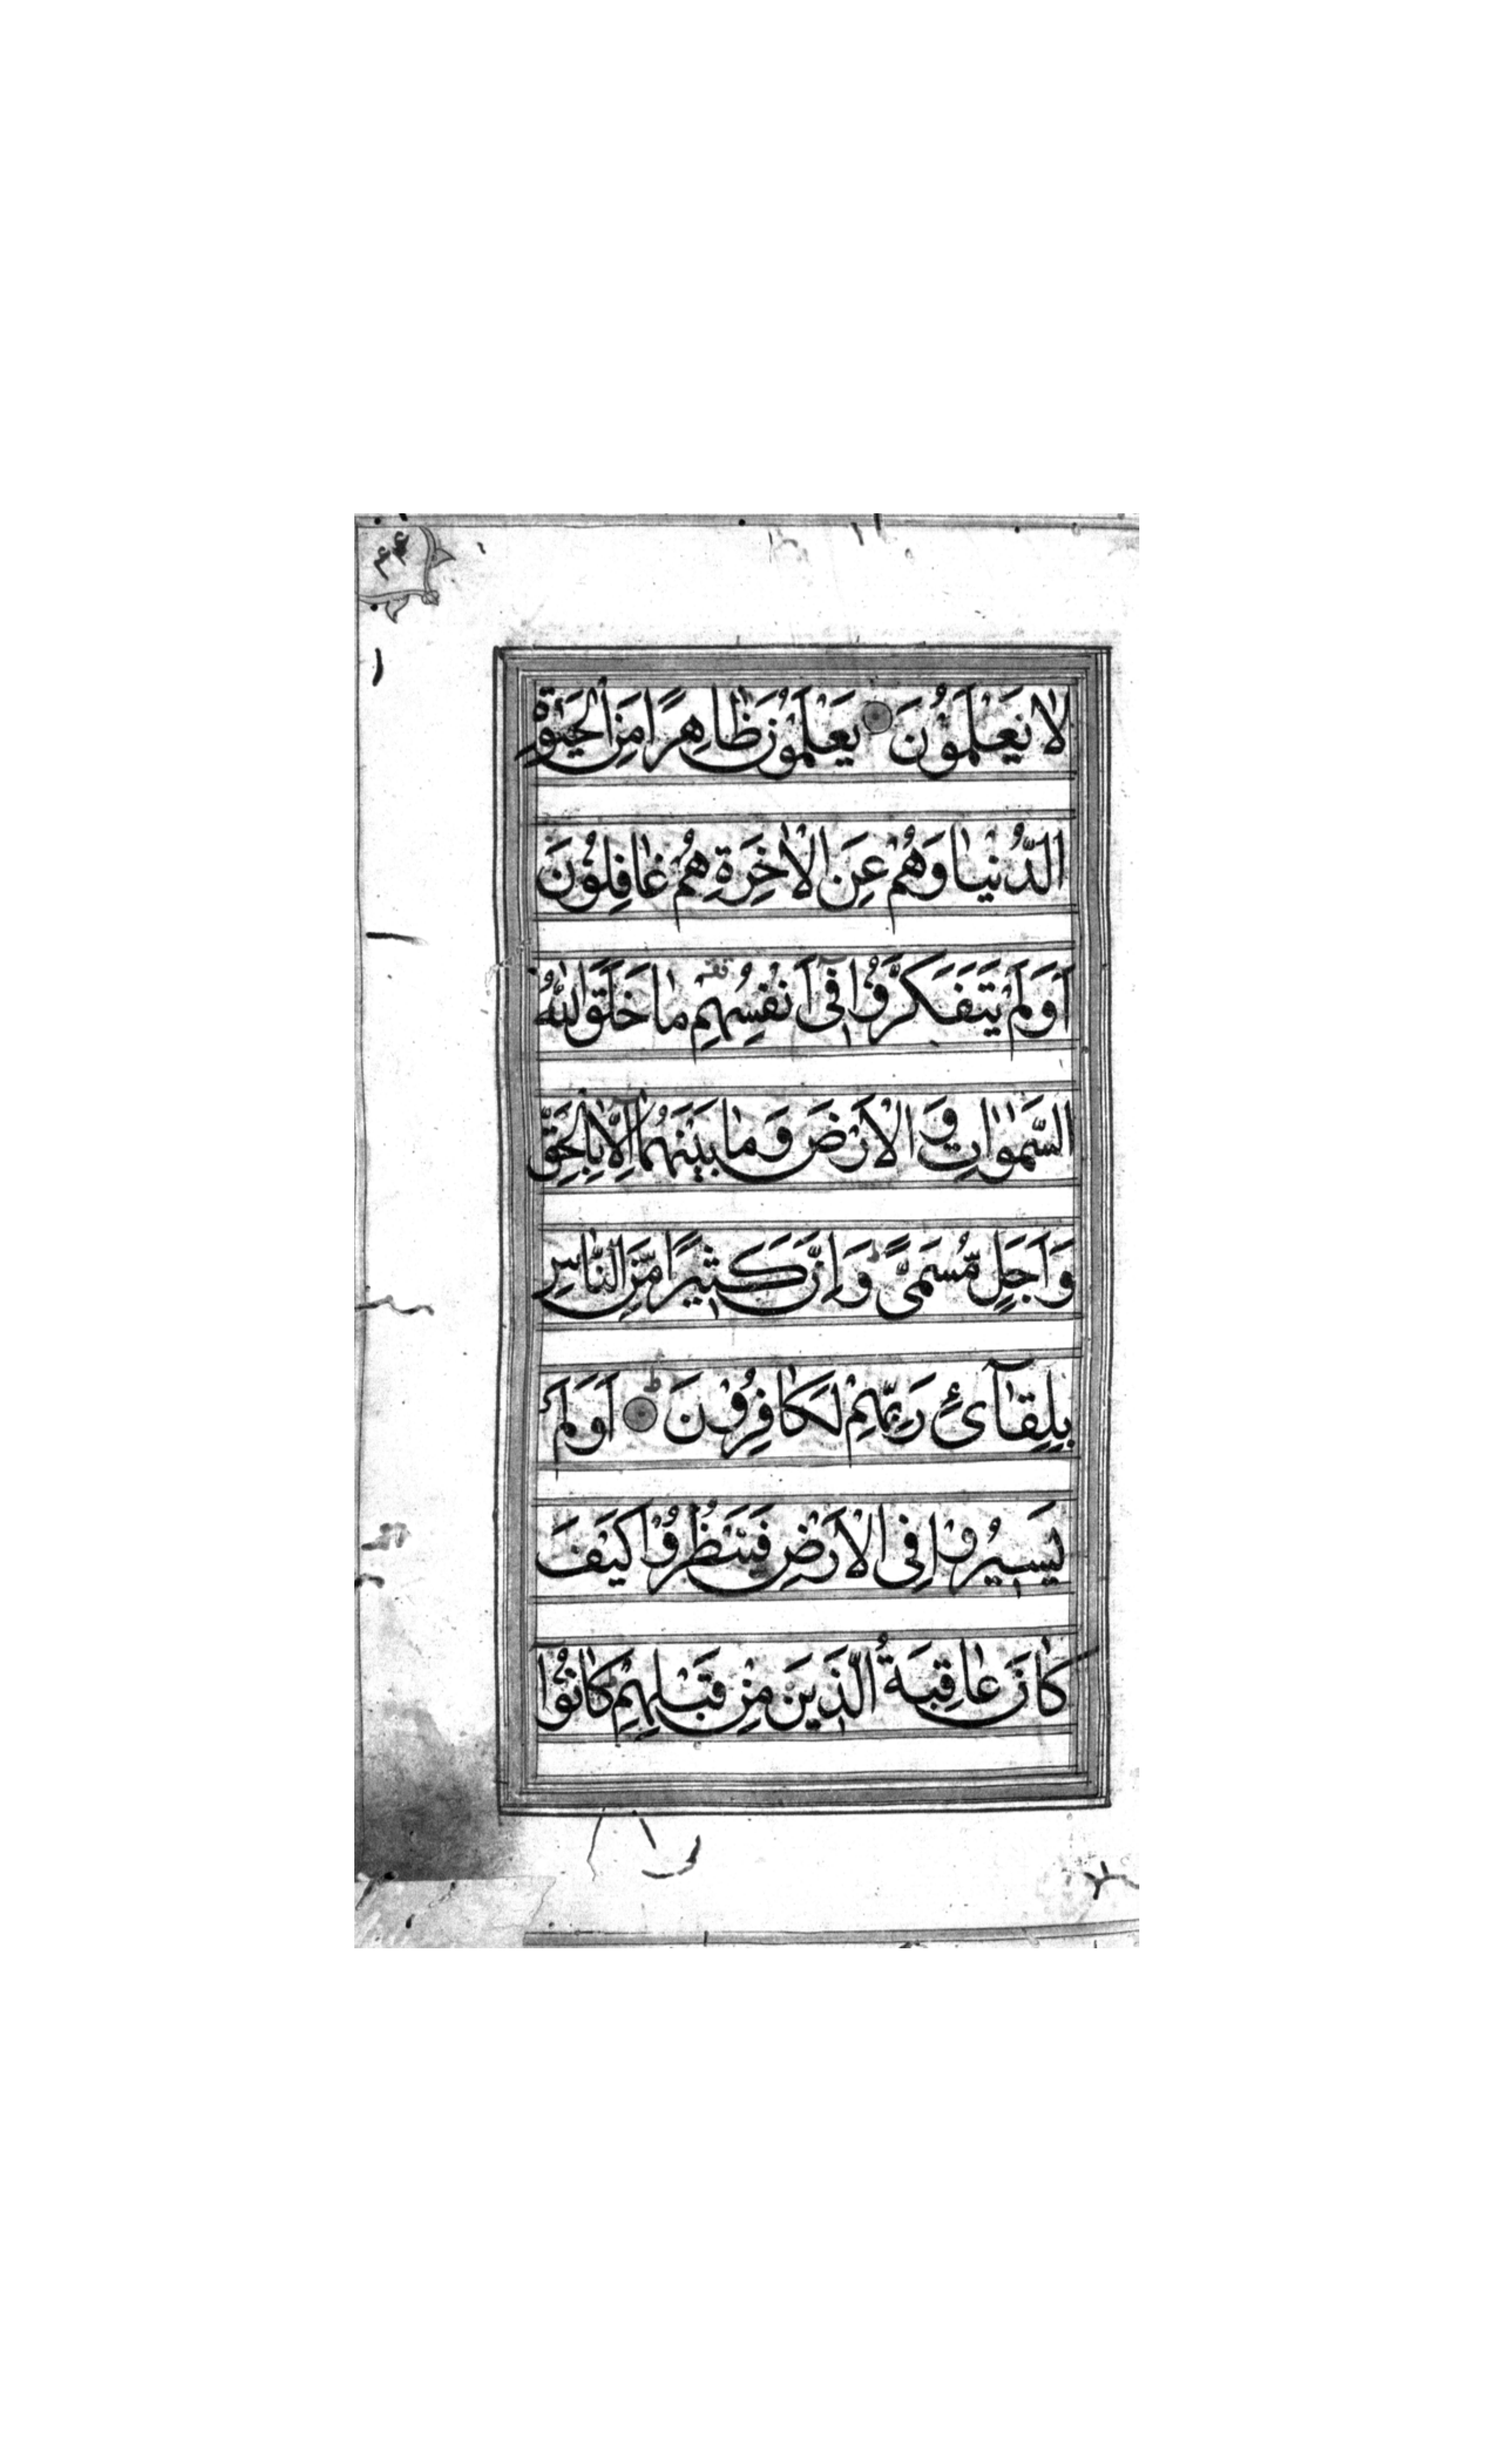 ۴۴
لَا يَعْلَمُوْنَ يَعْلَمُوْنَ ظَاهِرًا مِنَ الْحَيٰوةِ
الدُّنْيَا وَهُمْ عَنِ الْاٰخِرَةِ هُمْ غَافِلُوْنَ
اَوَلَمْ يَتَفَكَّرُوْا فِىْٓ اَنْفُسِهِمْ مَا خَلَقَ اللهُ
السَّمٰوَاتِ وَ الْاَرْضَ وَ مَا بَيْنَهُمَآ اِلَّا بِالْحَقِّ
وَ اَجَلٍ مُّسَمًّى وَ اِنَّ كَثِيْرًا مِّنَ النَّاسِ
بِلِقَآئِ رَبِّهِمْ لَكَافِرُوْنَ اَوَلَمْ
يَسِيْرُوْا فِى الْاَرْضِ فَيَنْظُرُوْا كَيْفَ
كَانَ عَاقِبَةُ الَّذِيْنَ مِنْ قَبْلِهِمْ كَانُوْٓا